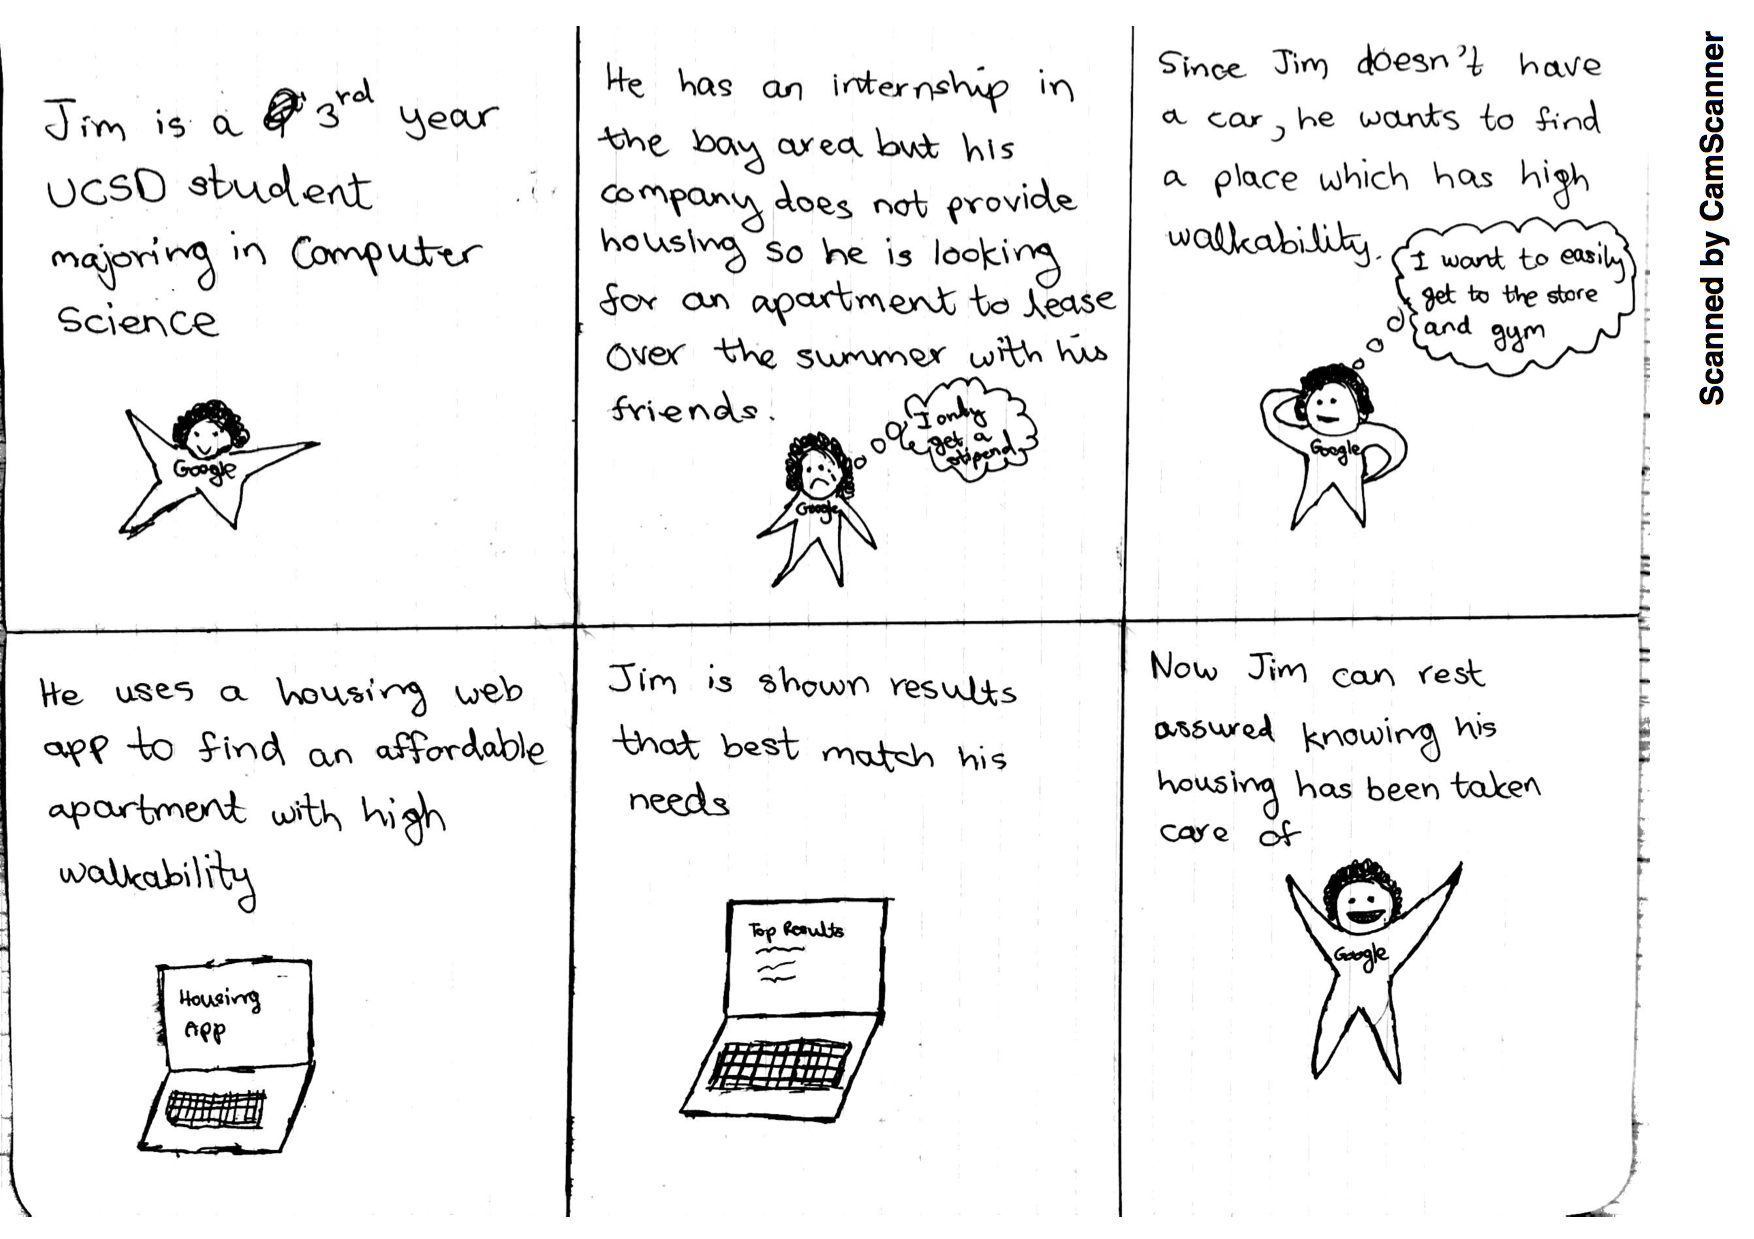 Jim is a 3rd year
UCSD student
majoring in Computer
Science
Google
He has an internship in
the bay area but his
company does not provide
housing so he is looking
for an apartment to lease
over the summer with his
friends.
I only
get a
stipend
Google
Since Jim doesn't have
a car, he wants to find
a place which has high
walkability.
I want to easily
get to the store
and gym
Google
He uses a housing web
app to find an affordable
apartment with high
walkability
Housing
App
Jim is shown results
that best match his
needs
Top Results
Now Jim can rest
assured knowing his
housing has been taken
care of
Google
Scanned by CamScanner